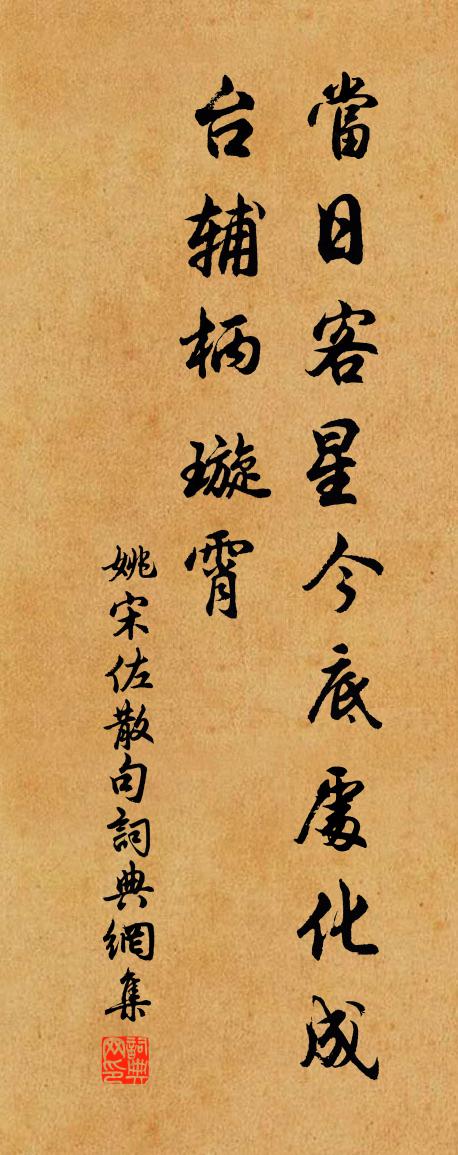 當日客星今底處化成
台辅柄璇霄
姚宋佐散句詞典網集
詞典网印